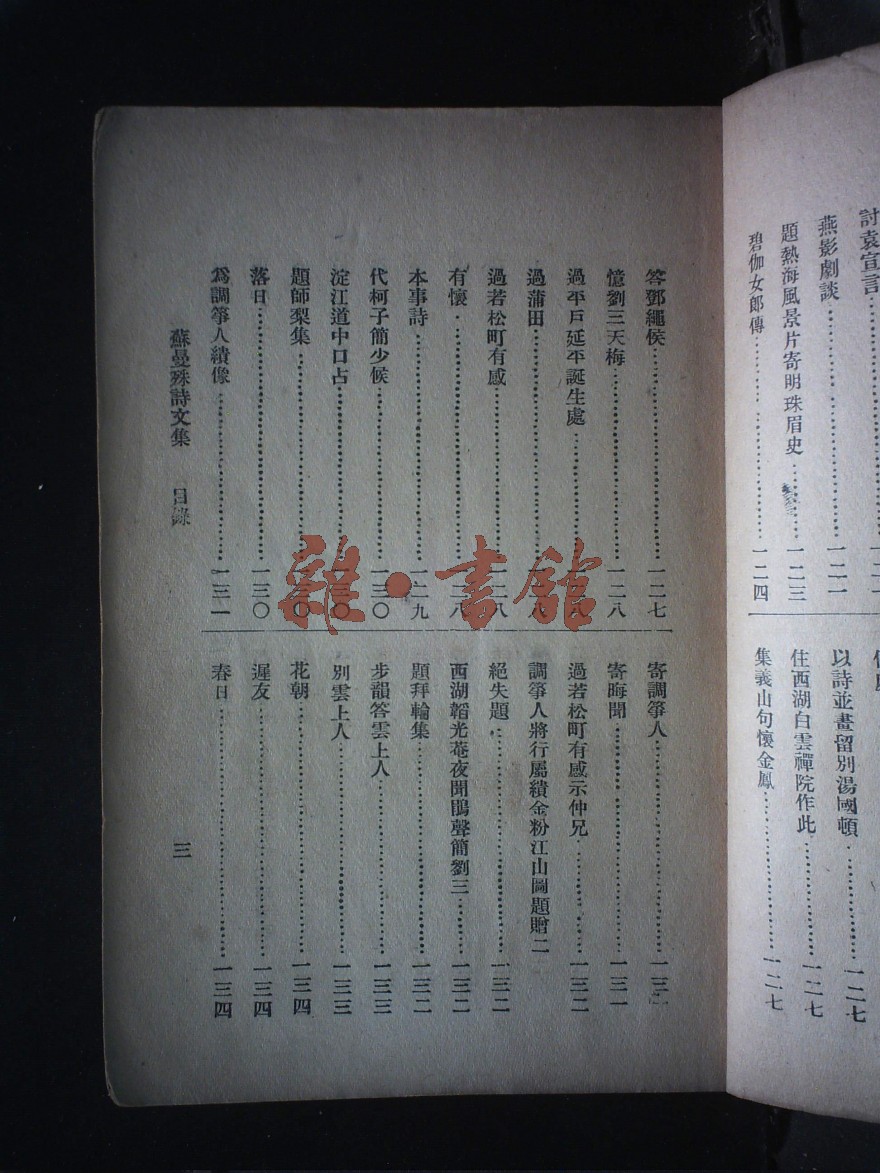 討袁宣言
燕影劇談 一二一
題熱海風景片寄明珠眉史 一二三
碧伽女郎傳 一二四
以詩並畫留別湯國頓 一二七
住西湖白雲禪院作此 一二七
集義山句懷金鳳 一二七
答鄧繩侯 一二七
憶劉三天梅 一二八
過平戶延平誕生處
過蒲田
過若松町有感 一二八
有懷 一二八
本事詩 一二九
代柯子簡少候 一三〇
淀江道中口占 一三〇
題師梨集 一三〇
落日 一三〇
為調箏人繢像 一三一
寄調箏人
寄晦聞 一三一
過若松町有感示仲兄 一三二
調箏人將行屬繢金粉江山圖題贈二
絕失題 一三二
西湖韜光菴夜聞鵑聲簡劉三 一三二
題拜輪集 一三二
步韻答雲上人 一三三
別雲上人 一三三
花朝 一三四
遲友 一三四
春日 一三四
蘇曼殊詩文集 目錄 三
雜·書館